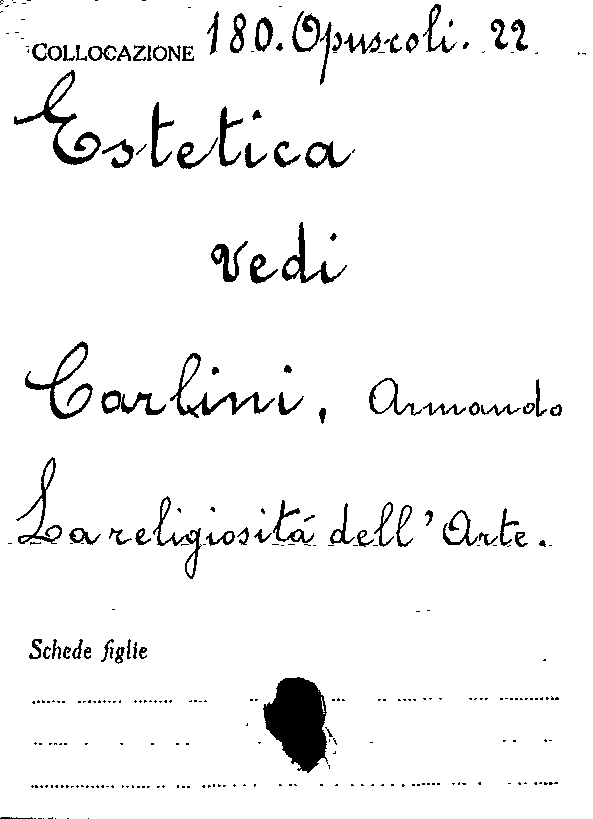 COLLOCAZIONE 180. Opuscoli. 22
Estetica
vedi
Carlini, Armando
La religiositá dell'Arte.
Schede figlie